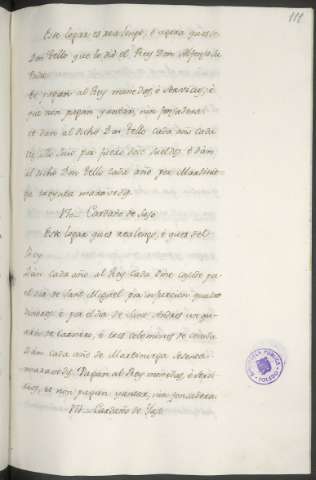 111
Este logar es realengo, é agora ques de
Don Tello que lo dió el Rey Don Alfonso su
Padre.
Et pagan al Rey monedas, é servicios, é
que non pagan yantar, nin fonsadera.
et dan al dicho Don Tello cada año cada
por fuero doce sueldos. et dan
al dicho Don Tello cada año por Martinie
ga sesenta maravedis.
Cardaño de Suso
Este logar ques realengo, é ques del
Rey.
Dan cada año al Rey cada Ome casado por
el dia de Sant Miguel por infurcion quatro
dineros, é por el dia de Sant Andres un quar
to de Carnero, é tres celemines de cevada
Dan cada año de Martiniega setenta
maravedis. Pagan al Rey monedas, é servi
cios, et non pagan yantar, nin fonsadera.
Cardaño de Yuso
BIBLIOTECA PÚBLICA
TOLEDO